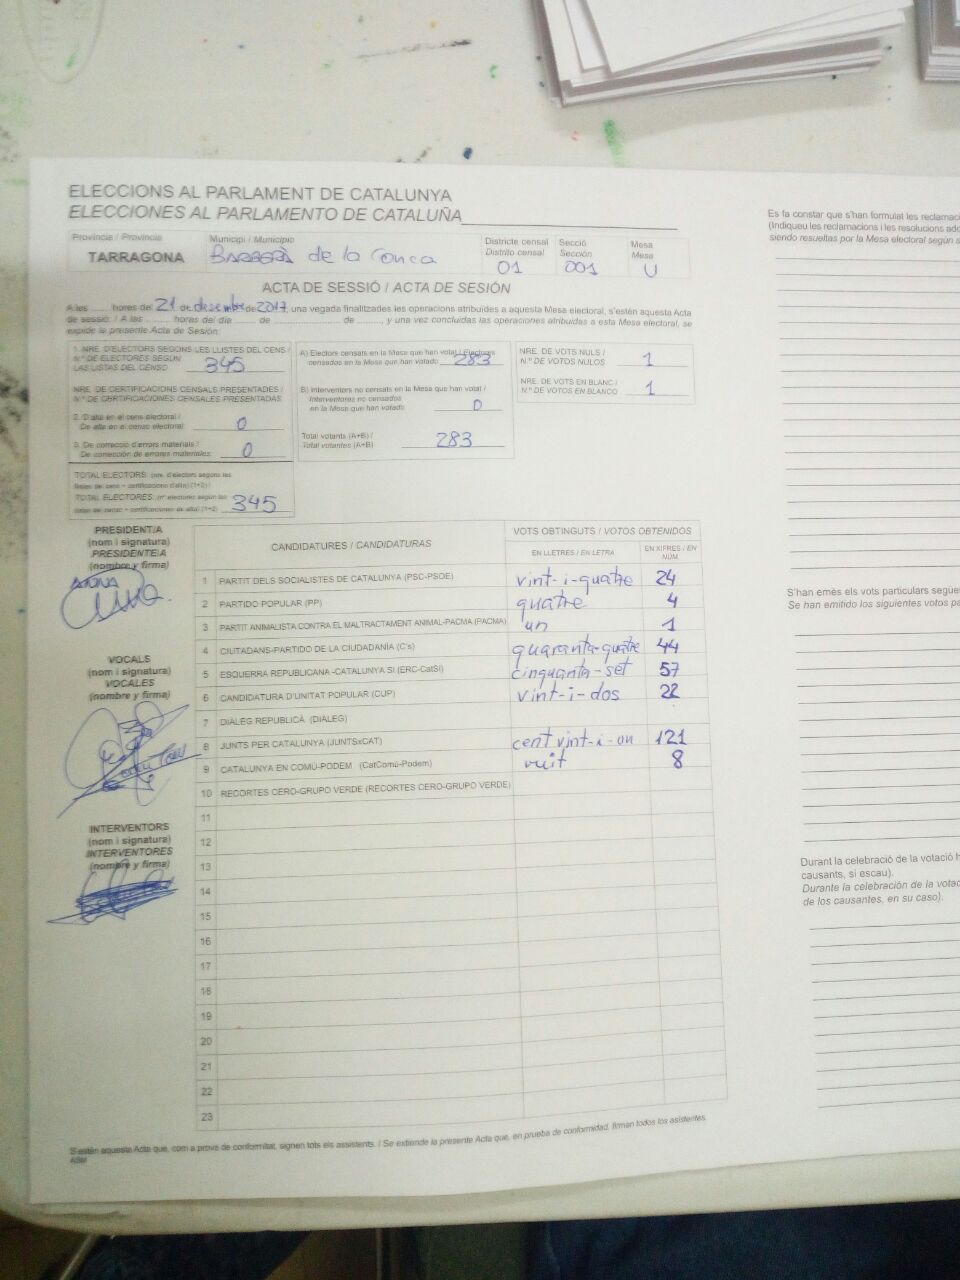 ELECCIONS AL PARLAMENT DE CATALUNYA
ELECCIONES AL PARLAMENTO DE CATALUÑA
Provincia / Provincia
TARRAGONA
Municipi / Municipio
BARBERÀ de la Conca
Districte censal
Distrito censal
01
Secció
Sección
001
Mesa
Mesa
U
ACTA DE SESSIÓ / ACTA DE SESIÓN
A les ........ hores del 21 de desembre de 2017, una vegada finalitzades les operacions atribuïdes a aquesta Mesa electoral, s'estén aquesta Acta
de sessió. / A las ........ horas del día ...... de .................... de ........, y una vez concluidas las operaciones atribuidas a esta Mesa electoral, se
expide la presente Acta de Sesión:
1. NRE. D'ELECTORS SEGONS LES LLISTES DEL CENS /
N.º DE ELECTORES SEGÚN
LAS LISTAS DEL CENSO 345
NRE. DE CERTIFICACIONS CENSALS PRESENTADES /
N.º DE CERTIFICACIONES CENSALES PRESENTADAS
2. D'alta en el cens electoral /
De alta en el censo electoral 0
3. De correcció d'errors materials /
De corrección de errores materiales 0
TOTAL ELECTORS: (nre. d'electors segons les
llistes del cens + certificacions d'alta) (1+2) /
TOTAL ELECTORES: (nº electores según las
listas del censo + certificaciones de alta) (1+2) 345
A) Electors censats en la Mesa que han votat / Electores
censados en la Mesa que han votado 283
B) Interventors no censats en la Mesa que han votat /
Interventores no censados
en la Mesa que han votado 0
Total votants (A+B) /
Total votantes (A+B) 283
NRE. DE VOTS NULS /
N.º DE VOTOS NULOS 1
NRE. DE VOTS EN BLANC /
N.º DE VOTOS EN BLANCO 1
PRESIDENT/A
(nom i signatura)
PRESIDENTE/A
(nombre y firma)
ANNA
VOCALS
(nom i signatura)
VOCALES
(nombre y firma)
INTERVENTORS
(nom i signatura)
INTERVENTORES
(nombre y firma)
CANDIDATURES / CANDIDATURAS
VOTS OBTINGUTS / VOTOS OBTENIDOS
EN LLETRES / EN LETRA
EN XIFRES / EN NÚM.
1 PARTIT DELS SOCIALISTES DE CATALUNYA (PSC-PSOE) vint-i-quatre 24
2 PARTIDO POPULAR (PP) quatre 4
3 PARTIT ANIMALISTA CONTRA EL MALTRACTAMENT ANIMAL-PACMA (PACMA) un 1
4 CIUTADANS-PARTIDO DE LA CIUDADANÍA (C's) quaranta-quatre 44
5 ESQUERRA REPUBLICANA -CATALUNYA SÍ (ERC-CatSí) cinquanta-set 57
6 CANDIDATURA D'UNITAT POPULAR (CUP) vint-i-dos 22
7 DIÀLEG REPUBLICÀ (DIÀLEG)
8 JUNTS PER CATALUNYA (JUNTSxCAT) cent vint-i-un 121
9 CATALUNYA EN COMÚ-PODEM (CatComú-Podem) vuit 8
10 RECORTES CERO-GRUPO VERDE (RECORTES CERO-GRUPO VERDE)
11
12
13
14
15
16
17
18
19
20
21
22
23
S'estén aquesta Acta que, com a prova de conformitat, signen tots els assistents. / Se extiende la presente Acta que, en prueba de conformidad, firman todos los asistentes.
Es fa constar que s'han formulat les reclamaci
(Indiqueu les reclamacions i les resolucions ado
siendo resueltas por la Mesa electoral según s
S'han emès els vots particulars següe
Se han emitido los siguientes votos pa
Durant la celebració de la votació h
causants, si escau).
Durante la celebración de la votac
de los causantes, en su caso).